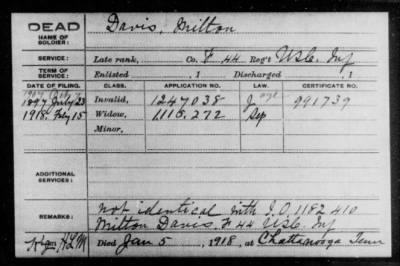 DEAD
NAME OF SOLDIER: Davis, Milton
SERVICE: Late rank, Co. F 44 Reg't U.S.C. Inf
TERM OF SERVICE: Enlisted , 1 Discharged , 1
DATE OF FILING. CLASS. APPLICATION NO. LAW. CERTIFICATE NO.
1897 July 23 Invalid, 1247038 J age 991739
1918 Feby 15 Widow, 1115,272 Sep
Minor,
ADDITIONAL SERVICES:
REMARKS: Not identical with I.O. 1182410
Milton Davis. F 44 U.S.C. Inf
Died Jan 5, 1918, at Chattanooga Tenn